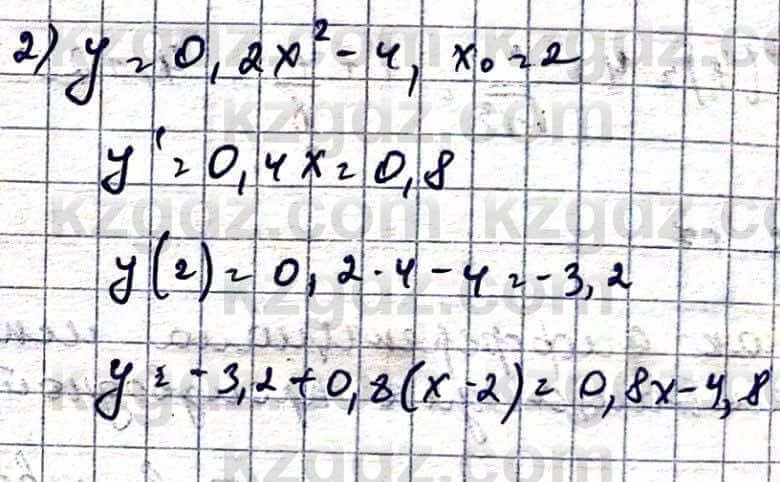 2) y = 0,2x² - 4, x₀ = 2
y' = 0,4x = 0,8
y(2) = 0,2·4 - 4 = -3,2
y = -3,2 + 0,8(x-2) = 0,8x - 4,8
kzgdz.com